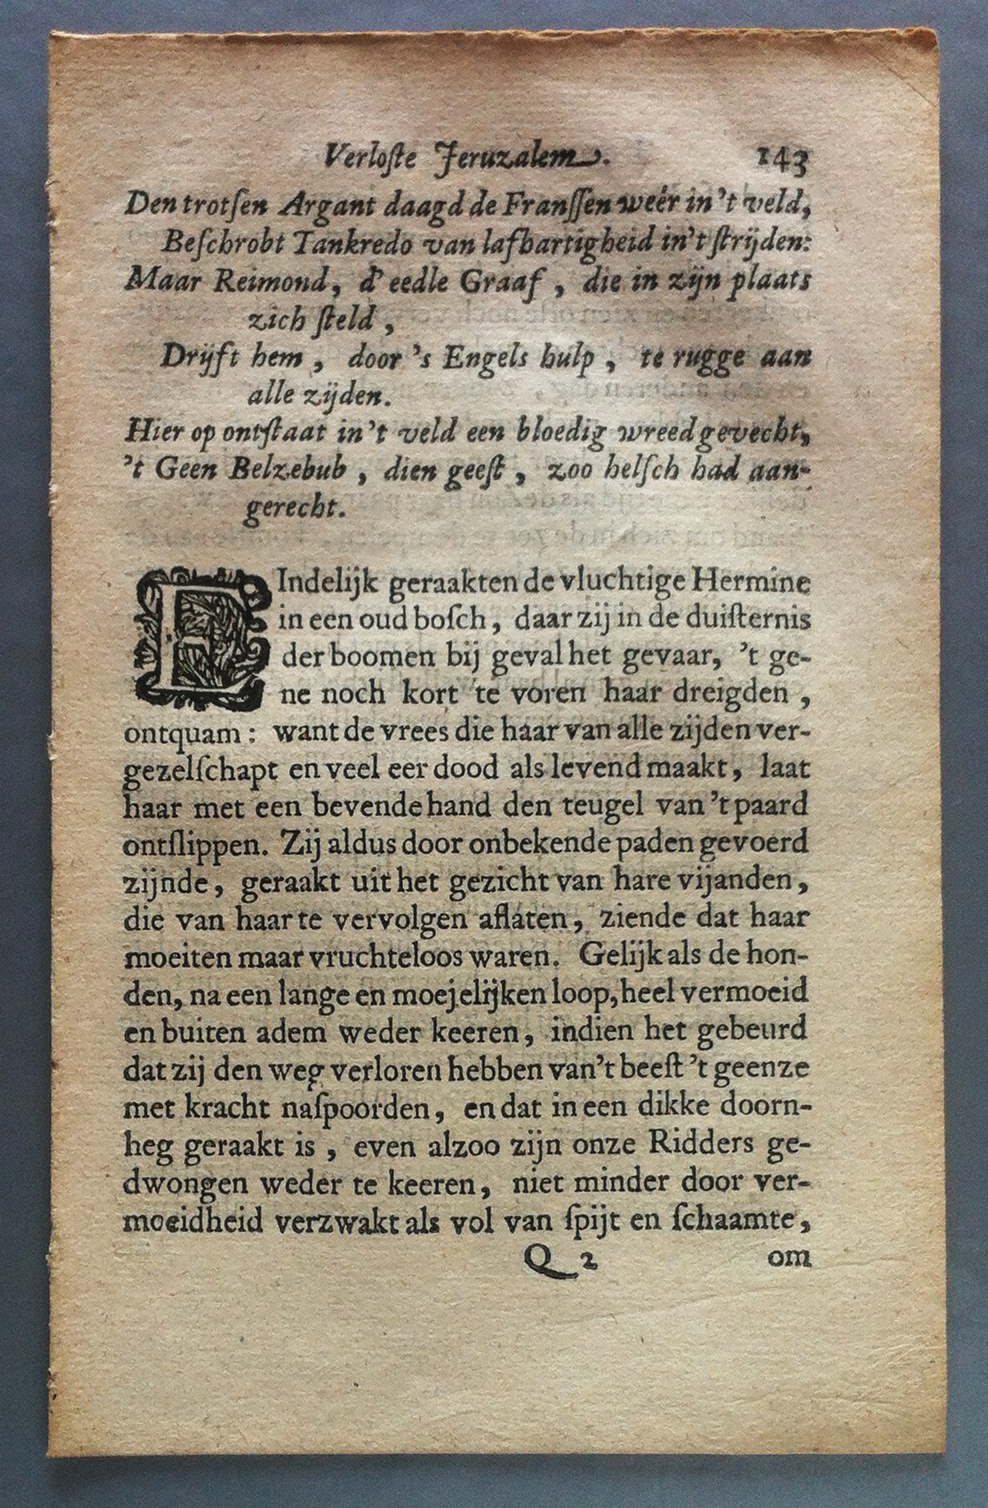 Verloſte Jeruzalem. 143
Den trotſen Argant daagd de Franſſen weér in 't veld,
Beſchrobt Tankredo van lafhartigheid in't ſtrijden:
Maar Reimond, d' eedle Graaf, die in zijn plaats
zich ſteld,
Drijft hem, door 's Engels hulp, te rugge aan
alle zijden.
Hier op ontſtaat in 't veld een bloedig wreed gevecht,
't Geen Belzebub, dien geeſt, zoo helſch had aan-
gerecht.
EIndelijk geraakten de vluchtige Hermine
in een oud boſch, daar zij in de duiſternis
der boomen bij geval het gevaar, 't ge-
ne noch kort te voren haar dreigden,
ontquam: want de vrees die haar van alle zijden ver-
gezelſchapt en veel eer dood als levend maakt, laat
haar met een bevende hand den teugel van 't paard
ontſlippen. Zij aldus door onbekende paden gevoerd
zijnde, geraakt uit het gezicht van hare vijanden,
die van haar te vervolgen aflaten, ziende dat haar
moeiten maar vruchteloos waren. Gelijk als de hon-
den, na een lange en moejelijken loop, heel vermoeid
en buiten adem weder keeren, indien het gebeurd
dat zij den weg verloren hebben van't beeſt 't geenze
met kracht naſpoorden, en dat in een dikke doorn-
heg geraakt is, even alzoo zijn onze Ridders ge-
dwongen weder te keeren, niet minder door ver-
moeidheid verzwakt als vol van ſpijt en ſchaamte,
Q 2 om